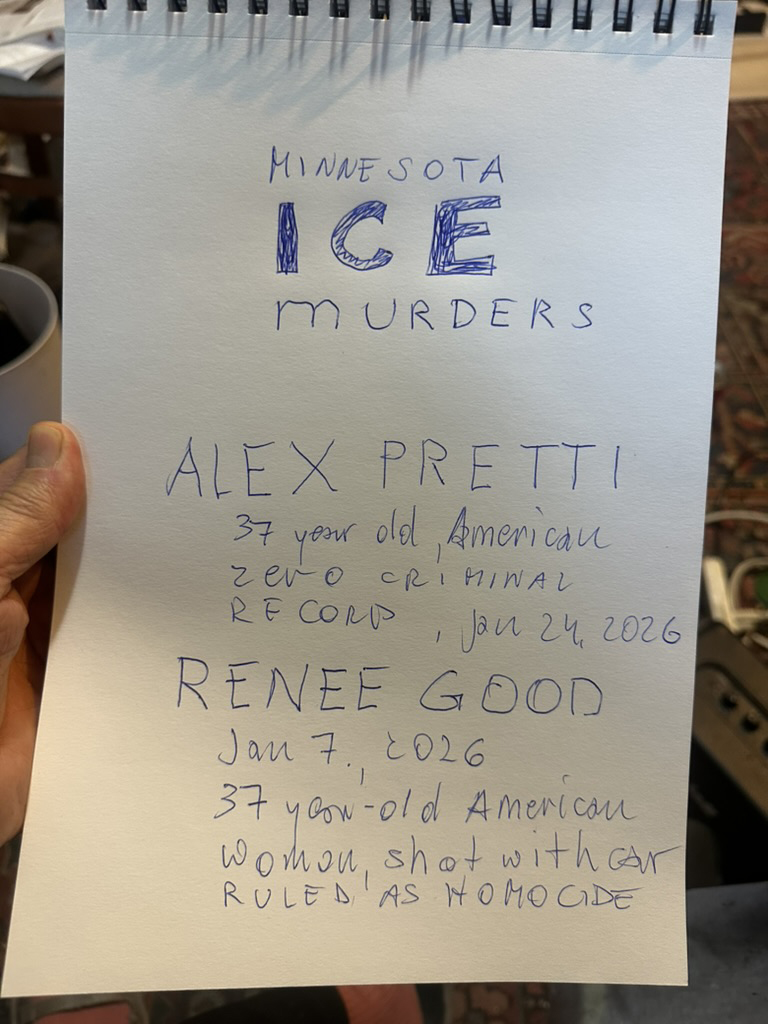 MINNESOTA
ICE
MURDERS
ALEX PRETTI
37 year old, American
zero CRIMINAL
RECORD, Jan 24, 2026
RENEE GOOD
Jan 7., 2026
37 year-old American
Woman, shot with car
RULED AS HOMOCIDE